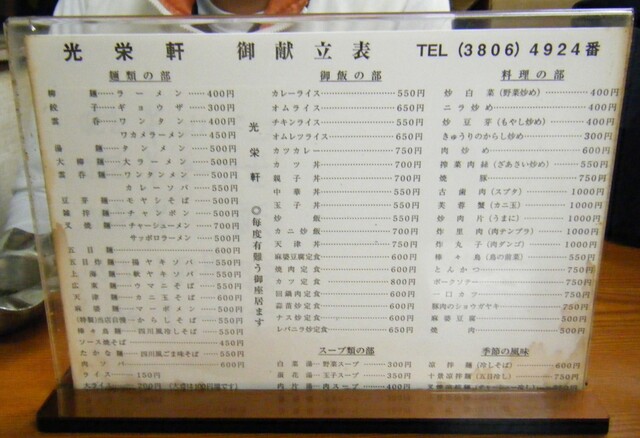 光栄軒 御献立表 TEL(3806)4924番
麺類の部
柳麺──ラーメン 400円
餃子──ギョウザ 300円
雲呑──ワンタン 400円
ワカメラーメン 450円
湯麺──タンメン 500円
大柳麺──大ラーメン 500円
雲呑麺──ワンタンメン 500円
カレーソバ 550円
豆芽麺──モヤシそば 500円
雑拌麺──チャンポン 500円
叉焼麺──チャーシューメン 700円
サッポロラーメン 500円
五目麺 600円
五目炸麺──揚ヤキソバ 550円
上海麺──軟ヤキソバ 550円
広東麺──ウマニそば 550円
天津麺──カニ玉そば 600円
麻婆麺──マーボメン 500円
(特製)当店自慢──からしそば 550円
棒々鳥麺──四川風冷しそば 550円
ソース焼そば 450円
たかな麺──四川風ごま味そば 550円
肉ソバ 600円
ライス 150円
光栄軒 ◎毎度有難う御座居ます
御飯の部
カレーライス 550円
オムライス 650円
チキンライス 550円
オムレツライス 650円
カツカレー 750円
カツ丼 700円
親子丼 700円
中華丼 550円
玉子丼 550円
炒飯 550円
カニ炒飯 700円
天津丼 750円
麻婆豆腐定食 600円
焼肉定食 600円
カツ定食 800円
回鍋肉定食 600円
韮菜炒定食 600円
ナス炒定食 600円
レバニラ炒定食 650円
スープ類の部
白菜湯──野菜スープ 300円
蛋花湯──玉子スープ 350円
肉片湯──肉スープ 400円
料理の部
炒白菜(野菜炒め) 400円
ニラ炒め 400円
炒豆芽(もやし炒め) 400円
きゅうりのからし炒め 300円
肉炒め 600円
搾菜肉絲(ざあさい炒め) 550円
焼豚 750円
古歯肉(スブタ) 1000円
芙蓉蟹(カニ玉) 1000円
炒肉片(うまに) 1000円
炸里肉(肉テンプラ) 1000円
炸丸子(肉ダンゴ) 1000円
棒々鳥(鳥の前菜) 550円
とんかつ 750円
ポークソテー 750円
一口カツ 750円
豚肉のショウガヤキ 750円
麻婆豆腐 500円
焼肉 500円
季節の風味
涼拌麺(冷しそば) 600円
十景涼拌麺(五目冷し) 750円